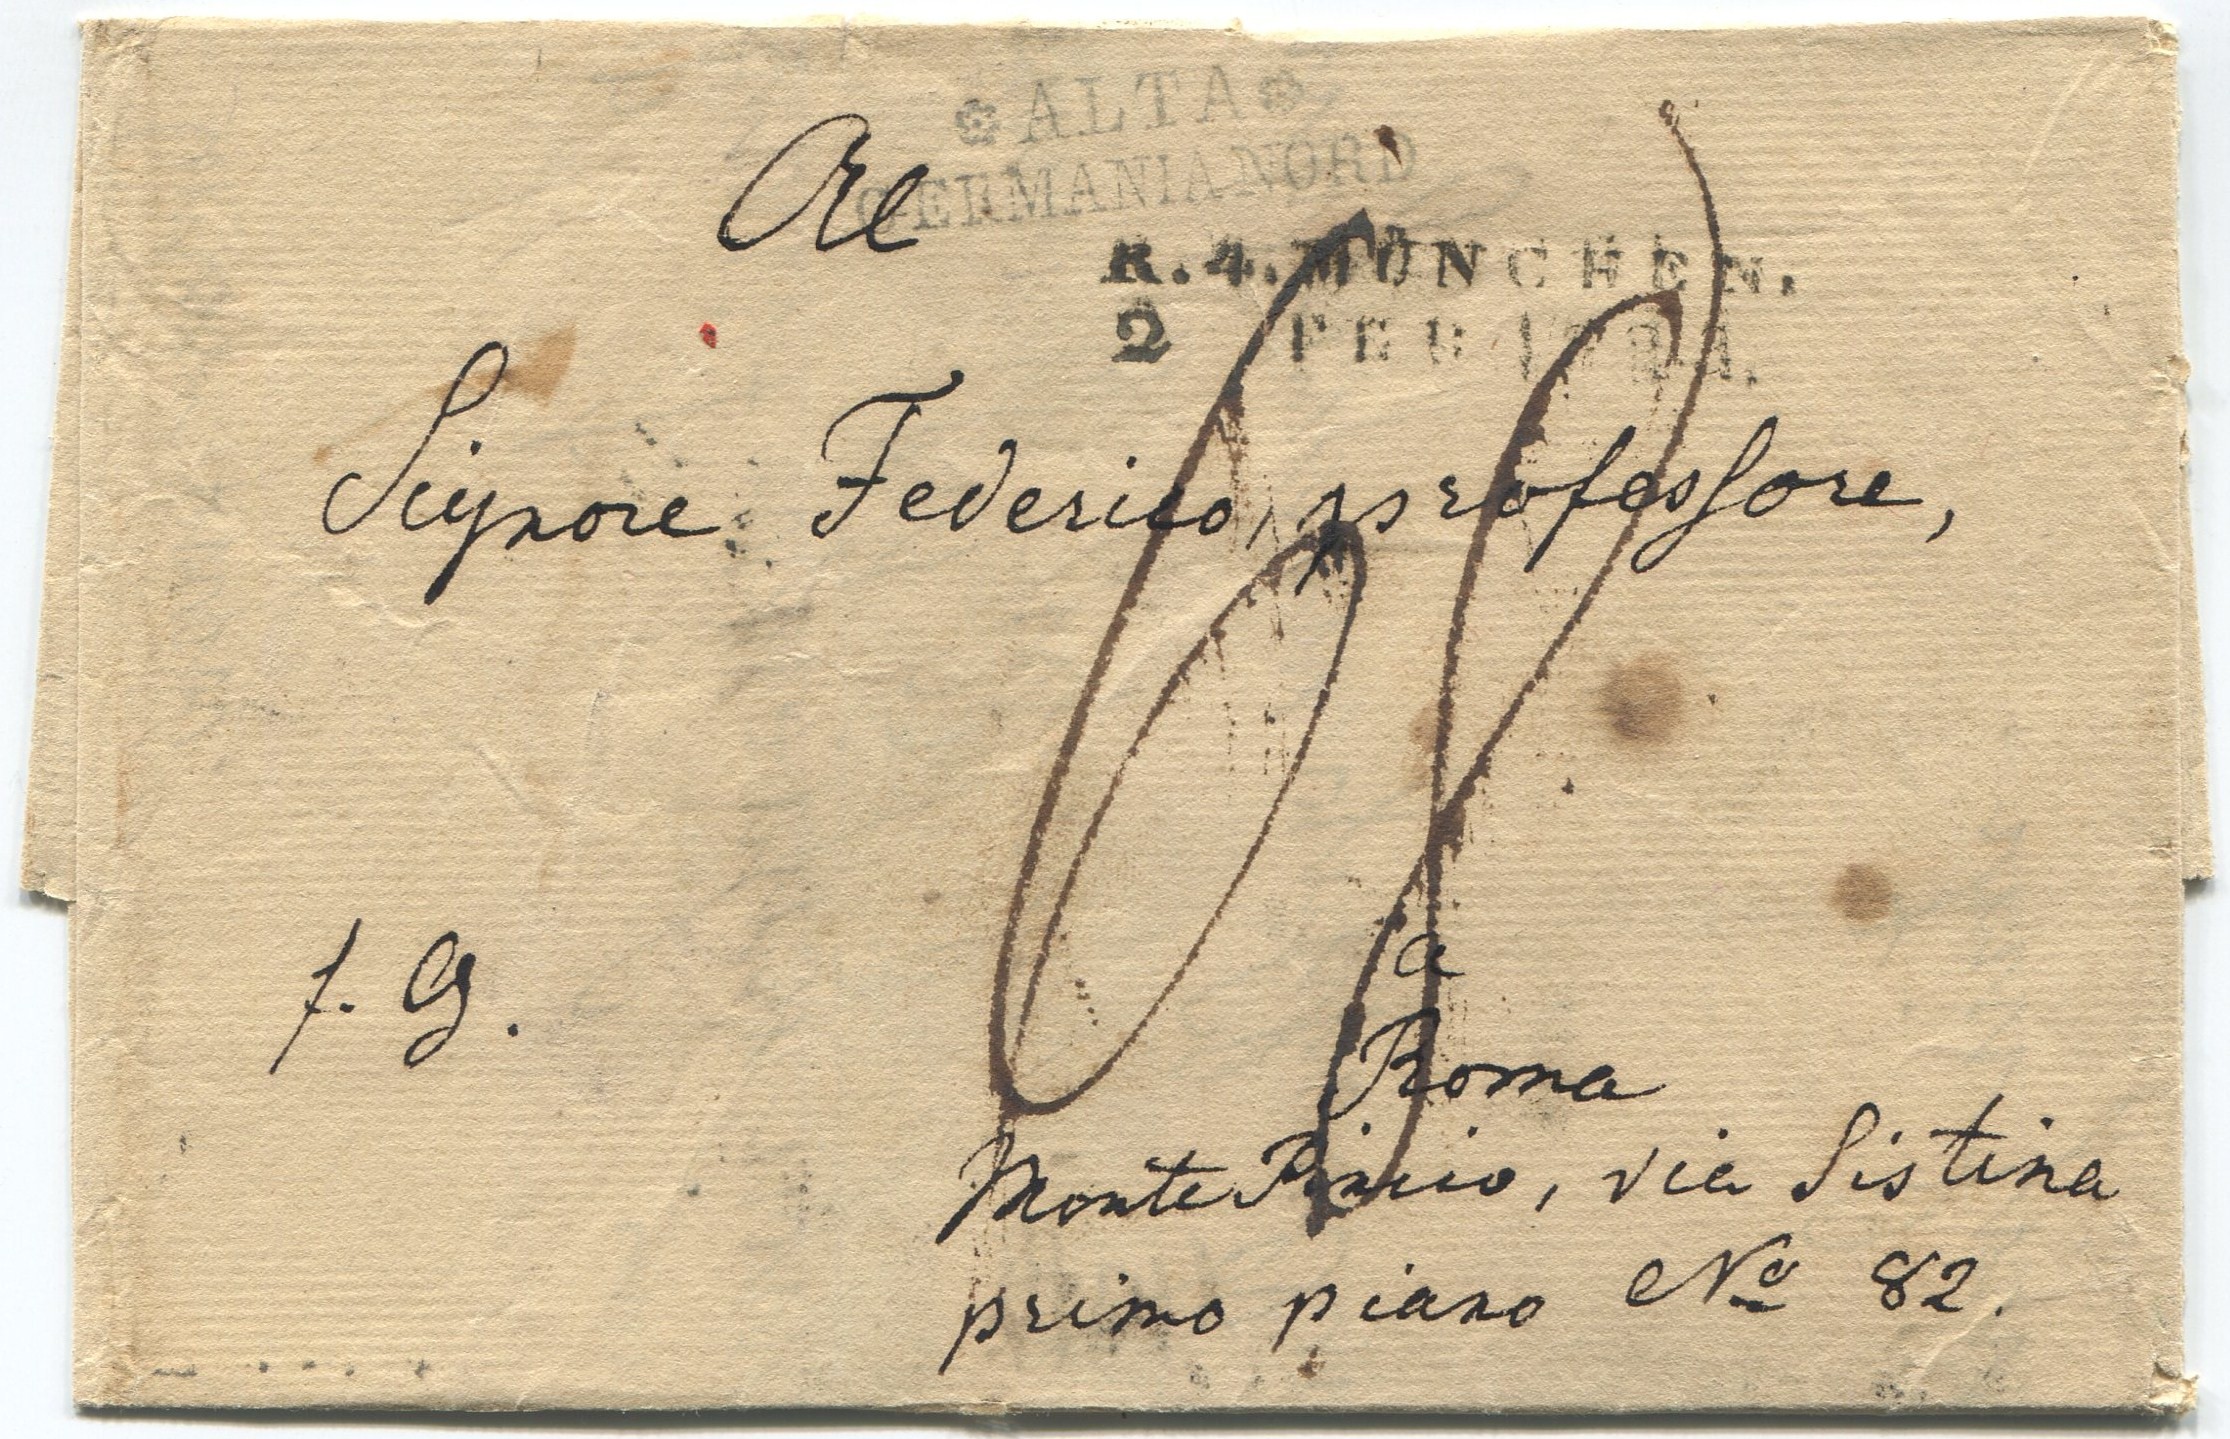 ALTA
GERMANIA NORD
Al
R. 4. MÜNCHEN.
2 FEB
Signore Federico, professore,
f. G.
a
Roma
Monte Pincio, via Sistina
primo piano No 82.